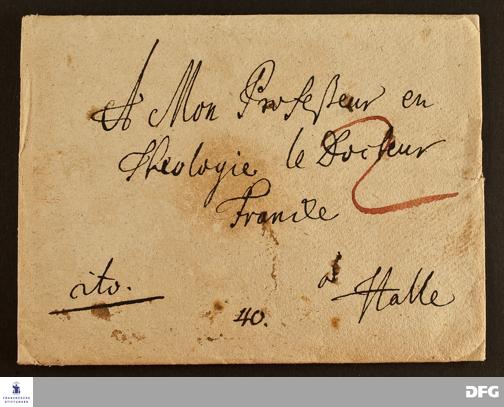 A Mon Professeur en
Theologie le Docteur
Francke
2
à Halle
cito.
40.
FRANCKESCHE
STIFTUNGEN
DFG